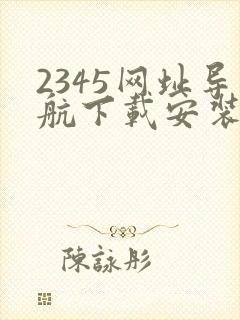 2345网址导
航下载安装
陳詠彤